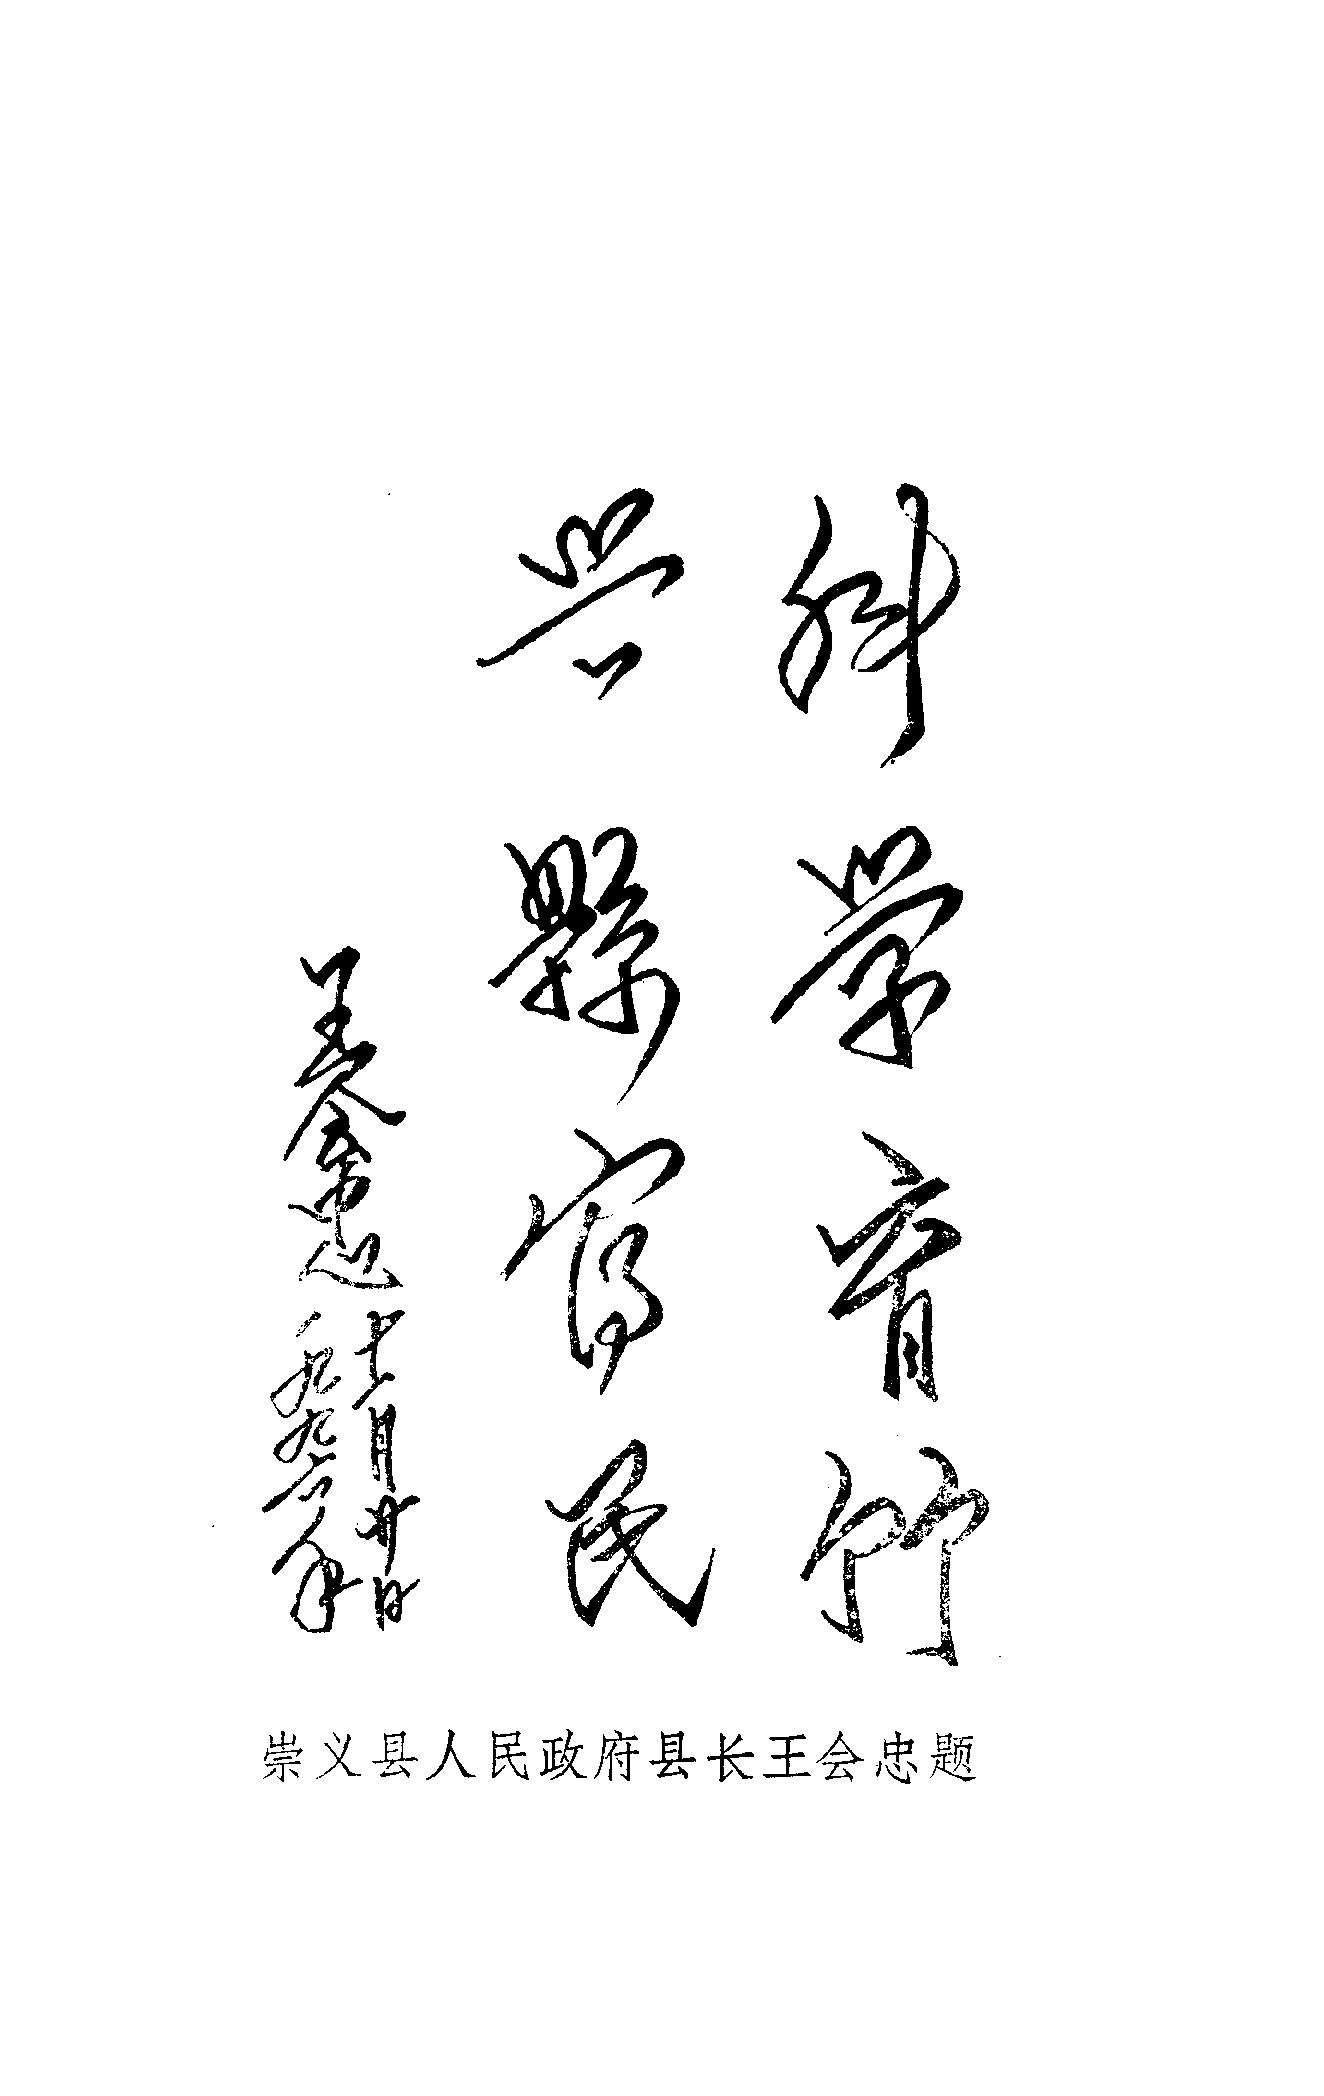 科学育竹
兴縣富民
王会忠
一九九六年
七月廿日
崇义县人民政府县长王会忠题